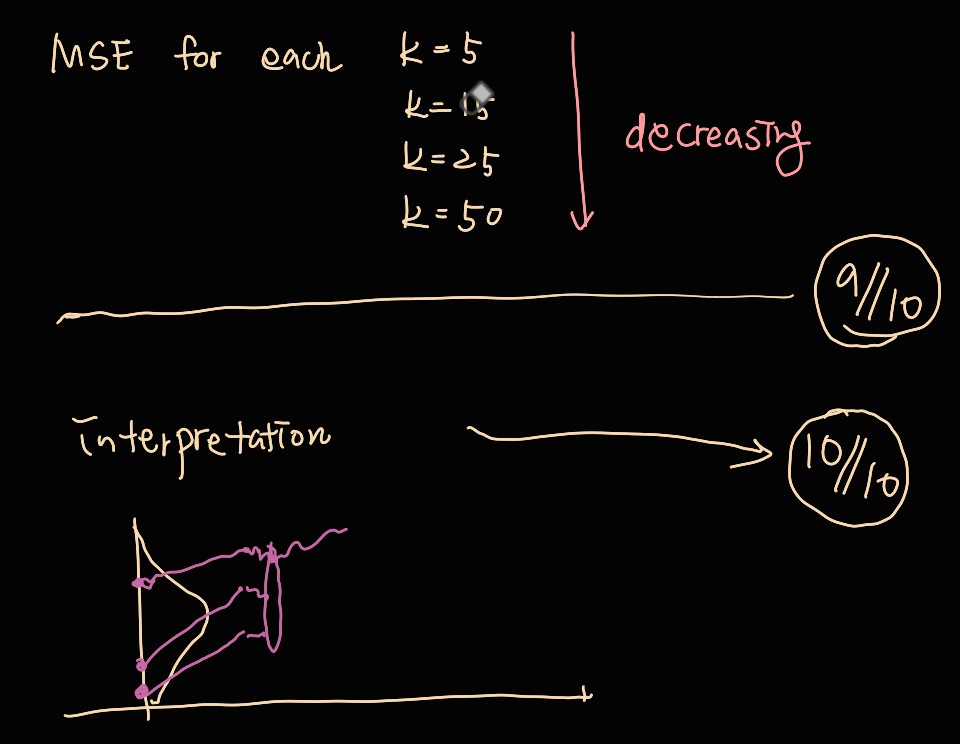 MSE for each k = 5
k = 15
k = 25
k = 50
decreasing
9//10
interpretation
10//10